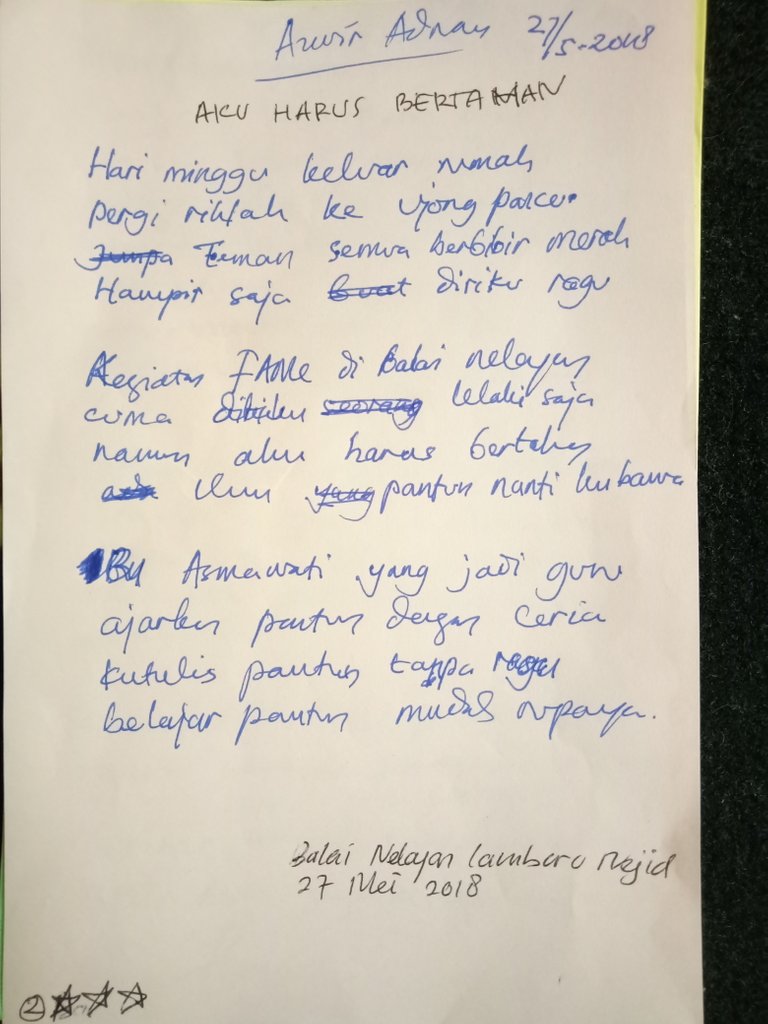 Azwir Adnan 27/5-2018
AKU HARUS BERTAHAN
Hari minggu keluar rumah
pergi rihlah ke ujong pancu
Teman semua berbibir merah
Hampir saja diriku ragu
Kegiatan FAMe di Balai nelayan
cuma diriku lelaki saja
namun aku harus bertahan
ilmu pantun nanti ku bawa
Bu Asmawati yang jadi guru
ajarkan pantun dengan ceria
kutulis pantun tanpa ragu
belajar pantun mudah rupanya.
Balai Nelayan Lambaro Nejid
27 Mei 2018
2